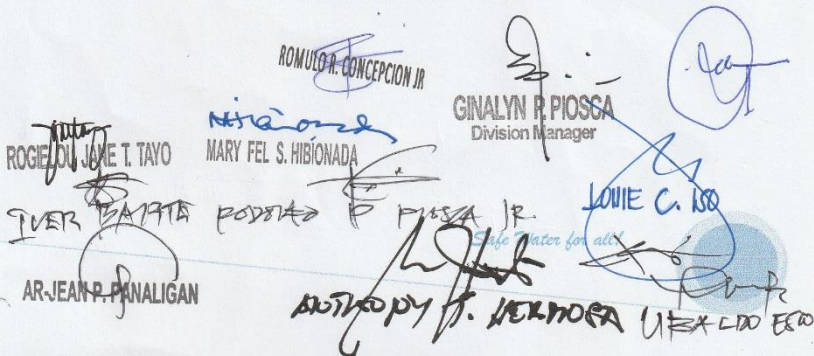 ROMULO R. CONCEPCION JR
GINALYN P. PIOSCA
Division Manager
ROGIELOU JANE T. TAYO
MARY FEL S. HIBIONADA
LOUIE C.
IVER
RODOLFO P. PIOSCA JR.
Safe Water for all!
AR-JEAN P. PANALIGAN
ANTHONY T. HERMOSA
UBALDO